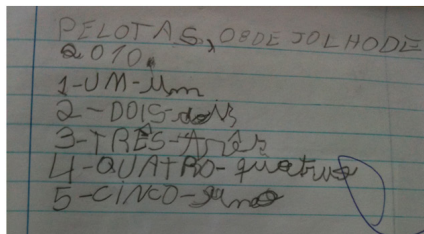 PELOTAS, 08 DE JOLHO DE
2010.
1-UM-um
2-DOIS-dois
3-TRÊS-três
4-QUATRO-quatro
5-CINCO-